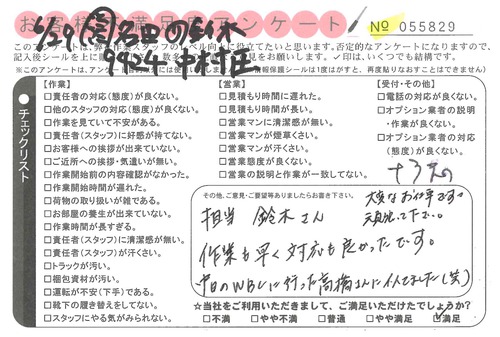 お客様満足度アンケート
№ 055829
このアンケートは、弊
記入後シールを上に
✓印は、いくつでも結構です。
チェックリスト
【作業】
□責任者の対応(態度)が良くない。
□他のスタッフの対応が良くない。
□作業を見ていて不安がある。
□責任者(スタッフ)に好感が持てない。
□お客様への挨拶が出来ていない。
□ご近所への挨拶・気遣いが無い。
□作業開始前の内容確認がなかった。
□作業開始時間が遅れた。
□荷物の取り扱いが雑である。
□お部屋の養生が出来ていない。
□作業時間が長すぎる。
□責任者(スタッフ)に清潔感が無い。
□責任者(スタッフ)が汗くさい。
□トラックが汚い。
□梱包資材が汚い。
□運転が不安(下手)である。
□靴下の履き替えをしてない。
□スタッフにやる気がみられない。
【営業】
□見積もり時間に遅れた。
□見積もり時間が長い。
□営業マンに清潔感が無い。
□営業マンが煙草くさい。
□営業マンが汗くさい。
□営業態度が良くない。
□営業の説明と作業が一致してない。
【受付・その他】
□電話の対応が良くない。
□オプション業者の説明
・作業が良くない。
□オプション業者の対応
(態度)が良くない。
その他、ご意見・ご要望等ありましたらお書き下さい。
大変なお仕事ですが
担当 鈴木さん
作業も早く対応も良かったです。
中日のWBCに行った高橋さんに似てました(笑)
☆当社をご利用いただきまして、ご満足いただけたでしょうか?
□不満 □やや不満 □普通 □やや満足 ☑満足